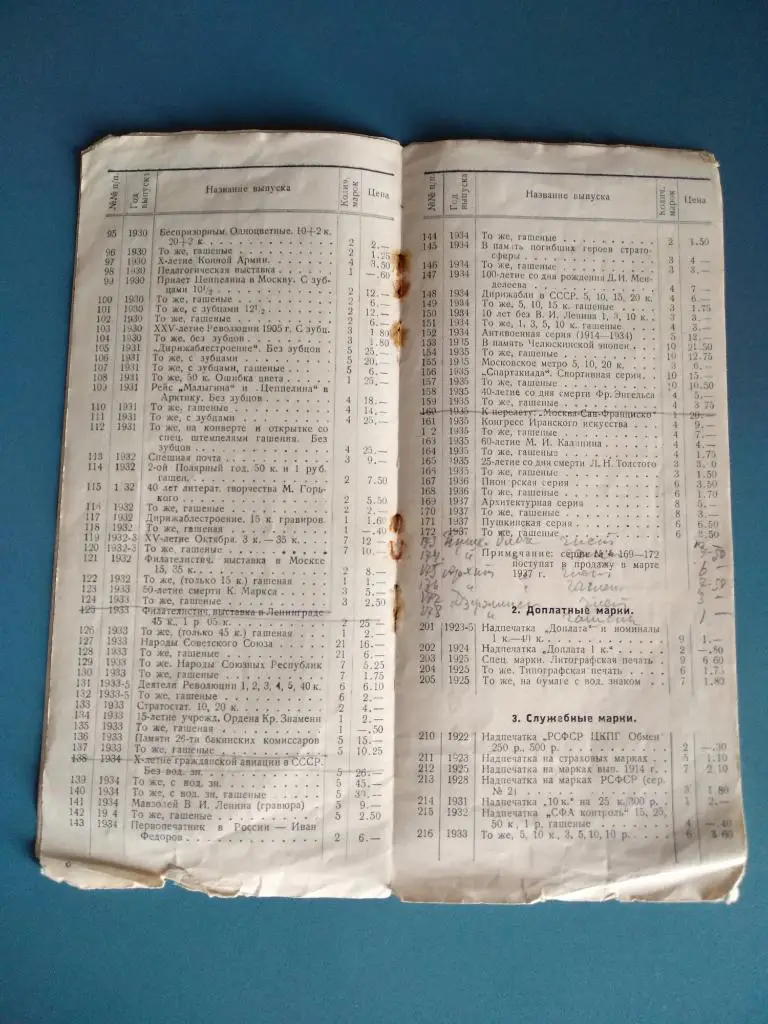 №№ п/п. Год выпуска Название выпуска Колич. марок Цена
95 1930 Беспризорным. Одноцветные. 10+2 к.
20+2 к. 2 2.—
96 1930 То же, гашеные 2 1.25
97 1930 X-летие Конной Армии. 4 3.50
98 1930 Педагогическая выставка 1 —.60
99 1930 Прилет Цеппелина в Москву. С зуб-
цами 10½ 2 12.—
100 1930 То же, гашеные 2 6.—
101 1930 То же, с зубцами 12½ 2 12.—
102 1930 То же, гашеные 2 6.—
103 1930 XXV-летие Революции 1905 г. С зубц. 3 1 80
104 1930 То же, без зубцов 3 1.80
105 1931 „Дирижаблестроение“. Без зубцов 5 25.—
106 1931 То же, с зубцами 5 20.—
107 1931 То же, с зубцами, гашеные 5 6.—
108 1931 То же, 50 к. Ошибка цвета 1 25.—
109 1931 Рейс „Малыгина“ и „Цеппелина“ в
Арктику. Без зубцов 4 18.—
110 1931 То же, гашеные 4 14.—
111 1931 То же, с зубцами 4 25.—
112 1931 То же, на конверте и открытке со
спец. штемпелями гашения. Без
зубцов 4 25.—
113 1932 Спешная почта 3 9.—
114 1932 2-ой Полярный год. 50 к. и 1 руб.
гашен. 2 7.50
115 1 32 40 лет литерат. творчества М. Горь-
кого 2 5.50
116 1932 То же, гашеные 2 2.—
117 1932 Дирижаблестроение. 15 к. гравиров. 1 1.60
118 1932 То же, гашеная 1 —.40
119 1932-3 XV-летие Октября. 3 к.— 35 к. 7 12 —
120 1932-3 То же, гашеные 7 10.—
121 1932 Филателистич. выставка в Москве
15, 35 к. 2 8.—
122 1932 То же, (только 15 к.) гашеная 1 1.—
123 1933 50-летие смерти К. Маркса 3 5.—
124 1933 То же, гашеные 3 2.50
125 1933 Филателистич. выставка в Ленинграде
45 к., 1 р 05 к. 2 25 —
126 1933 То же, (только 45 к.) гашеная 1 2.—
127 1933 Народы Советского Союза 21 16.—
128 1933 То же, гашеные 21 6.—
129 1933 То же. Народы Союзных Республик 7 5.25
130 1933 То же, гашеные 7 1.75
131 1933-5 Деятели Революции 1, 2, 3, 4, 5, 40 к. 6 6.10
132 1933-5 То же, гашеные 6 2.—
133 1933 Стратостат. 10, 20 к. 2 4.—
134 1933 15-летие учрежд. Ордена Кр. Знамени 1 2.—
135 1933 То же, гашеная 1 —.50
136 1933 Памяти 26-ти бакинских комиссаров 5 15.—
137 1933 То же, гашеные 5 10.25
138 1934 X-летие гражданской авиации в СССР.
Без вод. зн. 5 26.—
139 1934 То же, с вод. зн. 5 45.—
140 1934 То же, с вод. зн. гашеные 5
141 1934 Мавзолей В. И. Ленина (гравюра) 5 9.—
142 19 4 То же, гашеные 5 2.50
143 1934 Первопечатник в России — Иван
Федоров 2 6.—
6
№№ п/п. Год выпуска Название выпуска Колич. марок Цена
144 1934 То же, гашеные 2 1.50
145 1934 В память погибших героев страто-
сферы 3 4 —
146 1934 То же, гашеные 3 3.—
147 1934 100-летие со дня рождения Д. И. Мен-
делеева 4 7 —
148 1934 Дирижабли в СССР. 5, 10, 15, 20 к. 4 6.—
149 1934 То же, 5, 10, 15 к. гашеные 3 1.75
150 1934 10 лет без В. И. Ленина 1, 3, 5, 10 к. 4 3.—
151 1934 То же, 1, 3, 5, 10 к. гашеные 4
152 1934 Антивоенная серия (1914—1934) 5 12.—
153 1935 В память Челюскинской эпопеи 10 21.50
154 1935 То же, гашеные 10 12.75
155 1935 Московское метро 5, 10, 20 к. 3 6.—
156 1935 „Спартакиада“. Спортивная серия 10 15.—
157 1935 То же, гашеные 10 10.50
158 1935 40-летие со дня смерти Фр. Энгельса 4 5.—
159 1935 То же, гашеные 4 3 75
160 1935 К перелету: „Москва-Сан-Франциско“ 1 20.—
161 1935 Конгресс Иранского искусства 4 9.—
1 2 1935 То же, гашеные 4 7.—
163 1935 60-летие М. И. Калинина 4 4.—
164 1935 То же, гашеные 4 1.75
165 1935 25-летие со дня смерти Л. Н. Толстого 3 3. 0
166 1935 То же, гашеные 3
167 1936 Пионерская серия 6 3.50
168 1936 То же, гашеные 6 1.70
169 1937 Архитектурная серия 8 5.—
170 1937 То же, гашеные 8 3.—
171 1937 Пушкинская серия 6 6.50
172 1937 То же, гашеные 6
Примечание: серии №№ 169—172
поступят в продажу в марте
1937 г.
2. Доплатные марки.
201 1923-5 Надпечатка „Доплата“ и номиналы
1 к.—40 к. 9 1.—
202 1924 Надпечатка „Доплата 1 к.“ 2 —.80
203 1925 Спец. марки. Литографская печать 9 6 60
204 1925 То же. Типографская печать 6 1.75
205 1925 То же, на бумаге с вод. знаком 7 1.80
3. Служебные марки.
210 1922 Надпечатка „РСФСР ЦКПГ Обмен“
250 р., 500 р. 2 —.30
211 1923 Надпечатка на страховых марках 5 1.10
212 1925 Надпечатка на марках вып. 1914 г. 7 2.10
213 1928 Надпечатка на марках РСФСР (сер.
№ 2) 3 1.80
214 1931 Надпечатка „10 к.“ на 25 к./300 р. 1 2.—
215 1932 Надпечатка „СФА контроль“ 15, 25,
50 к., 1 р. гашеные 4 —.40
216 1933 То же, 5, 10 к., 3, 5, 10, 10 р. 6 3 60